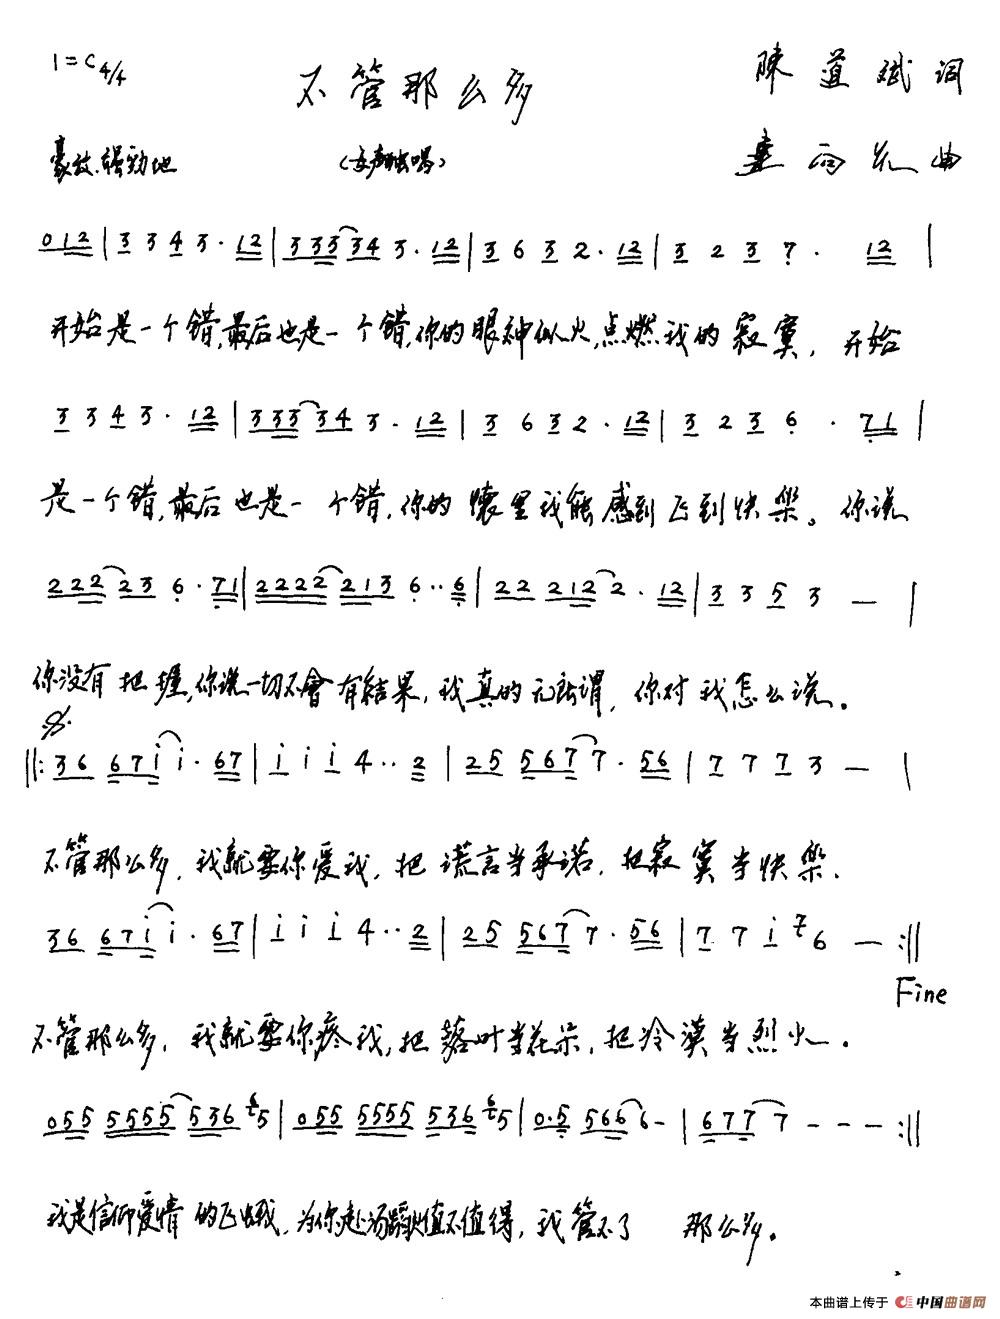 1=C 4/4
不管那么多
陳道斌词
豪放、强劲地
（女声独唱）
曲
0 1 2 | 3 3 4 3 · 1 2 | 3 3 3 3 4 3 · 1 2 | 3 6 3 2 · 1 2 | 3 2 3 7 · 1 2 |
开始是一个错,最后也是一个错,你的眼神似火,点燃我的寂寞，开始
3 3 4 3 · 1 2 | 3 3 3 3 4 3 · 1 2 | 3 6 3 2 · 1 2 | 3 2 3 6 · 7 1 |
是一个错,最后也是一个错,你的懷里我能感到飞到快樂。你说
2 2 2 2 3 6 · 7 1 | 2 2 2 2 2 1 3 6 · · 6 | 2 2 2 1 2 2 · 1 2 | 3 3 5 3 — |
你没有把握,你说一切不會有结果,我真的无所谓,你对我怎么说。
𝄋
||: 3 6 6 7 i i · 6 7 | i i i 4 · · 2 | 2 5 5 6 7 7 · 5 6 | 7 7 7 3 — |
不管那么多,我就要你爱我,把谎言当承诺,把寂寞当快樂.
3 6 6 7 i i · 6 7 | i i i 4 · · 2 | 2 5 5 6 7 7 · 5 6 | 7 7 i 7 6 — :||
Fine
不管那么多,我就要你疼我,把落叶当花朵,把冷漠当烈火.
0 5 5 5 5 5 5 5 3 6 6 5 | 0 5 5 5 5 5 5 5 3 6 6 5 | 0 · 5 5 6 6 6 - | 6 7 7 7 - - - :||
我是信仰爱情的飞蛾,为你赴汤蹈火值不值得,我管不了 那么多。
2
本曲谱上传于 中国曲谱网